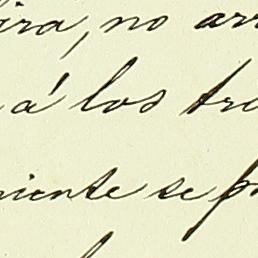 ira, no arr
á los tra
niente se p